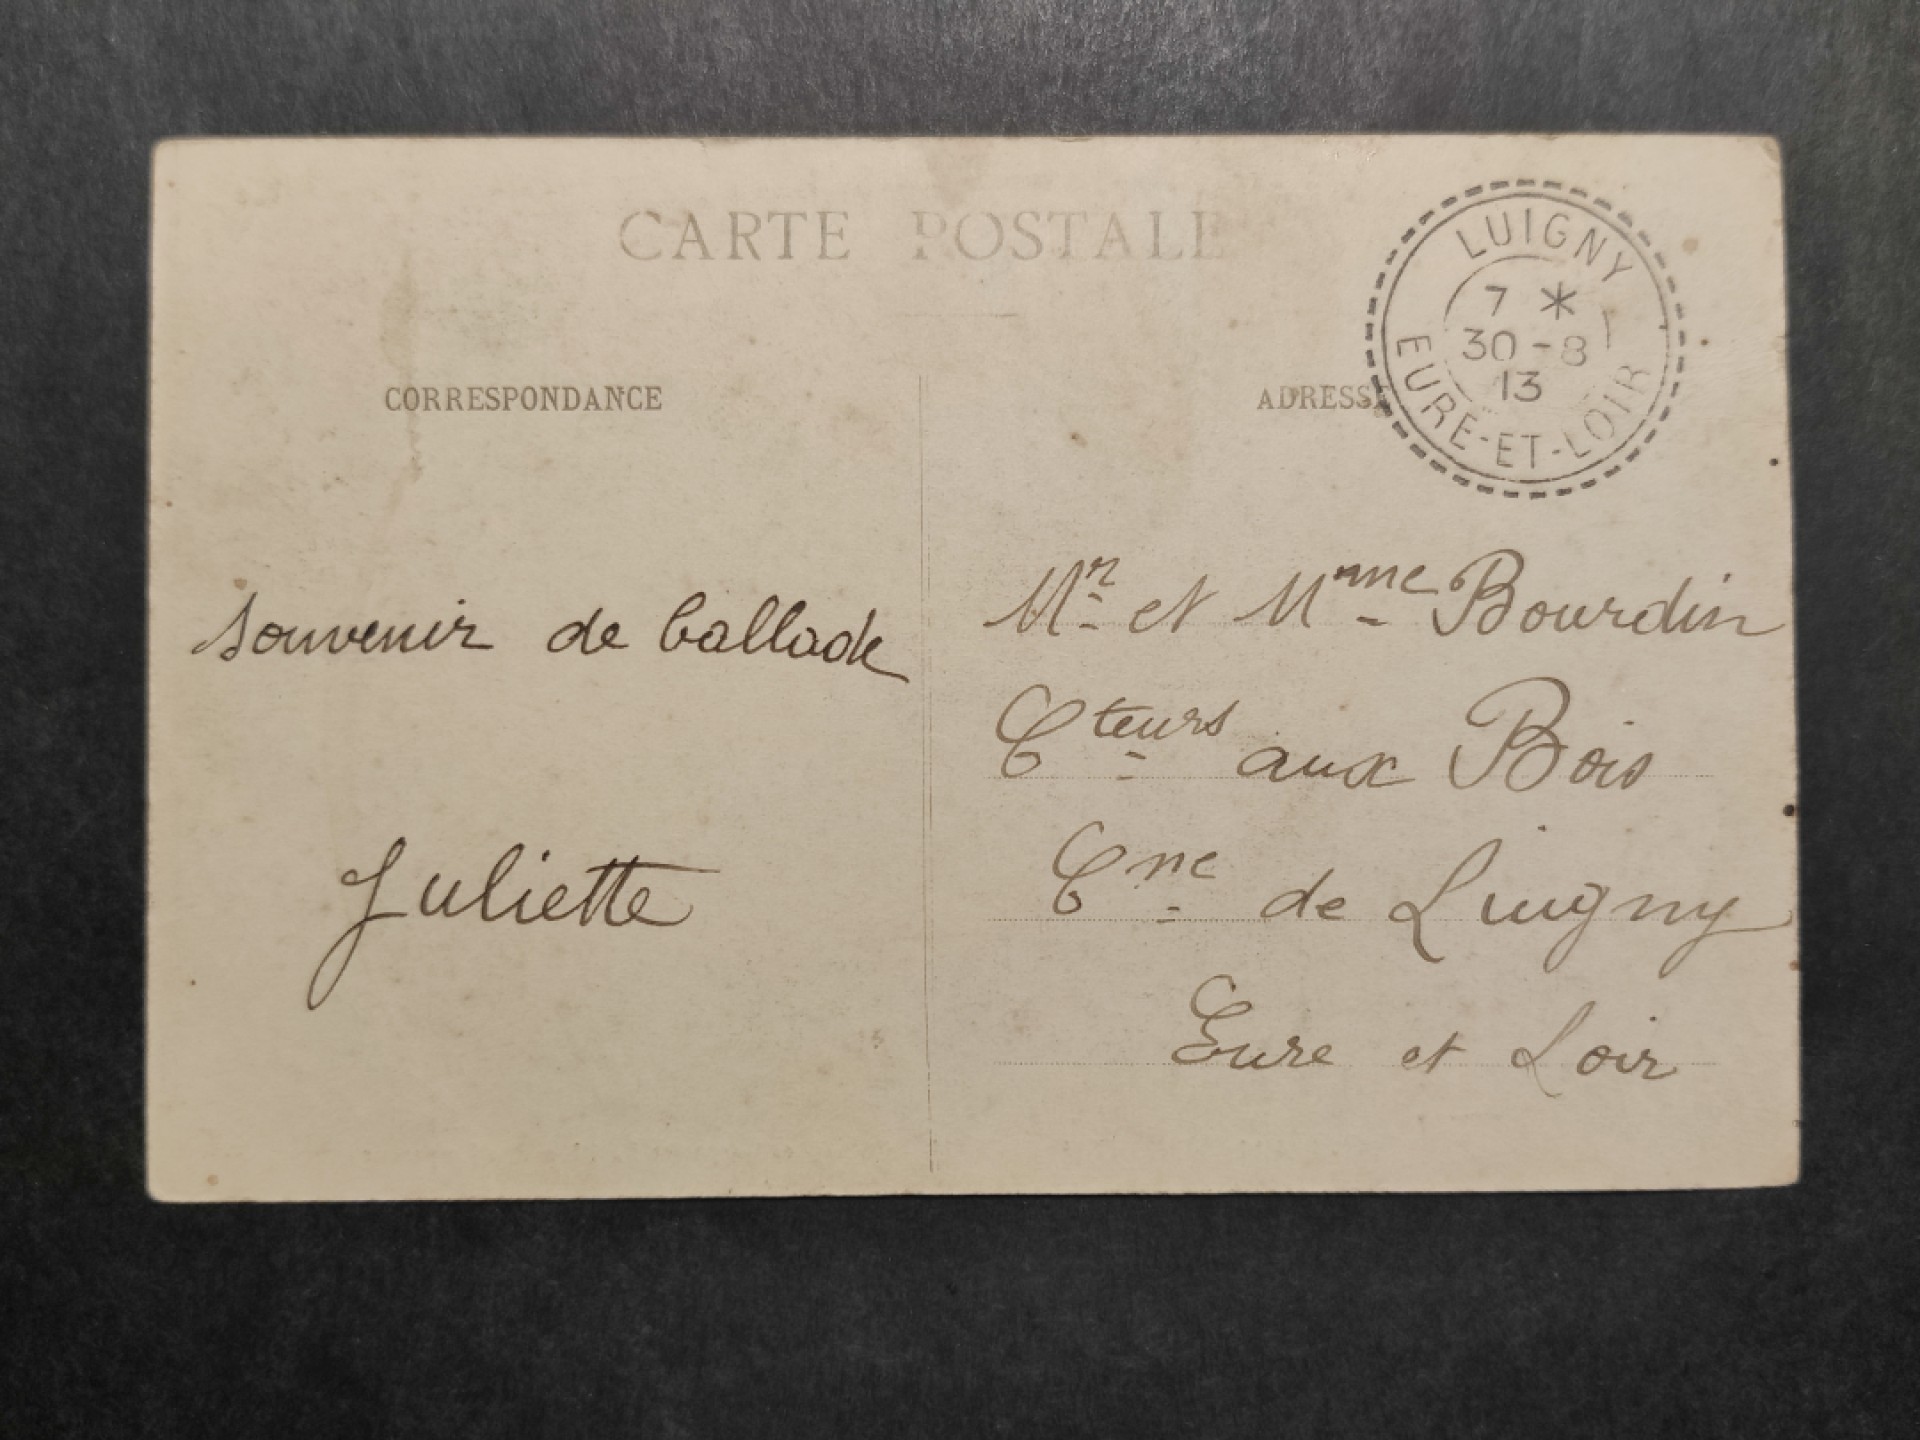 CARTE POSTALE
CORRESPONDANCE
ADRESSE
LUIGNY
7 *
30 - 8
13
EURE-ET-LOIR
souvenir de ballade
Juliette
Mr et Mme Bourdin
Cteurs aux Bois
Cne de Luigny
Eure et Loir